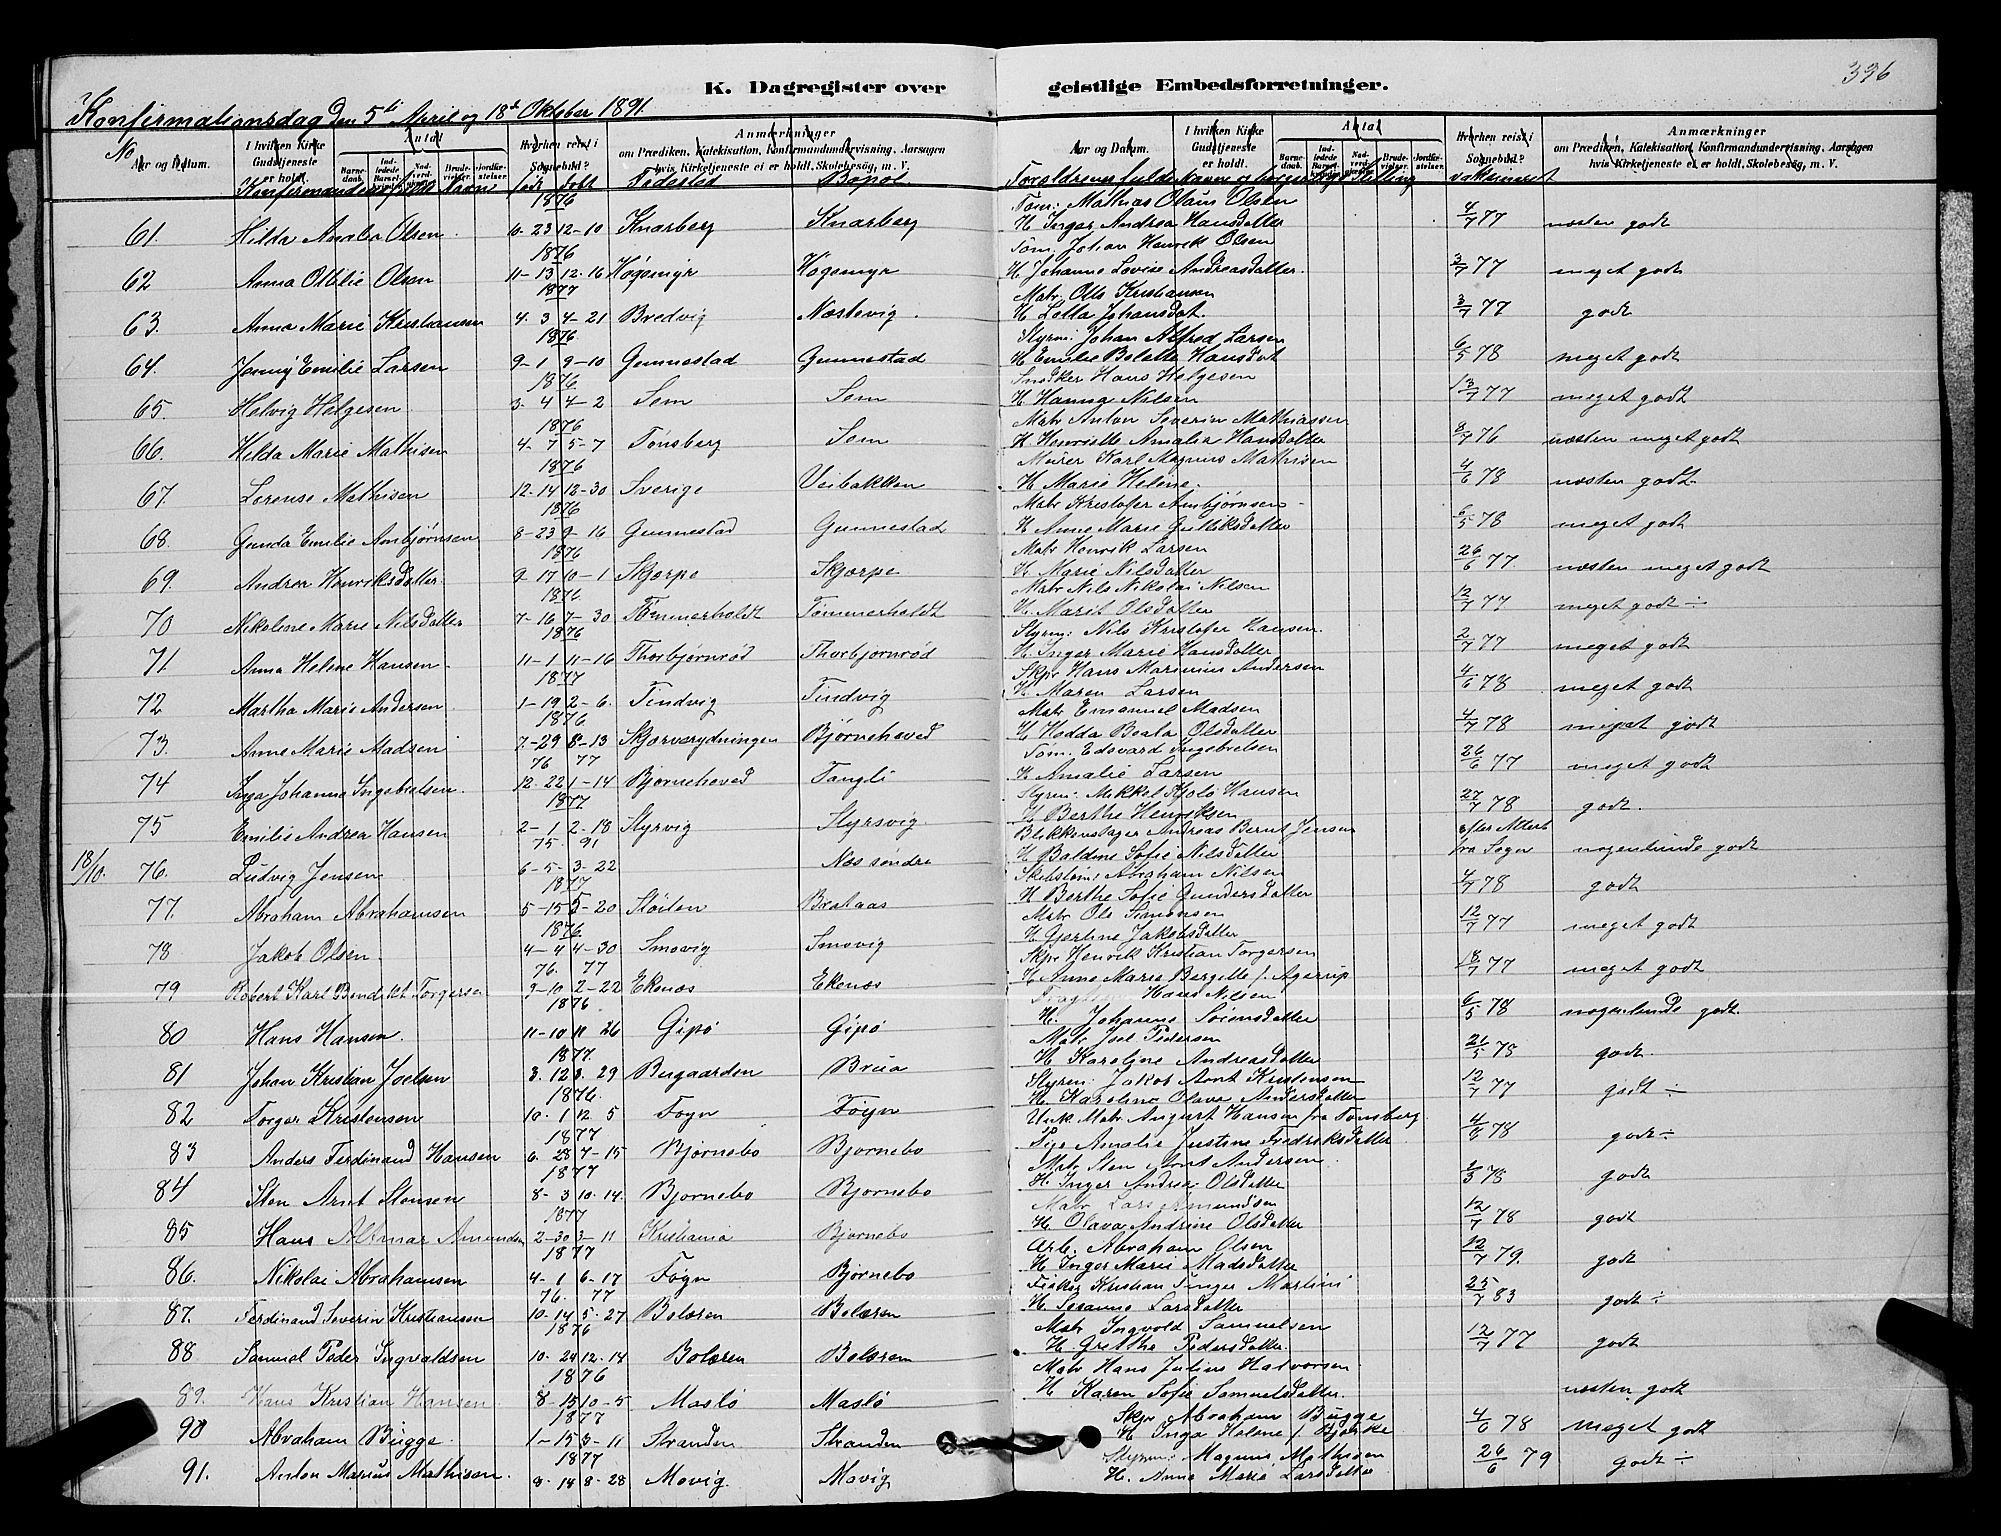 336
K. Dagregister over geistlige Embedsforretninger.
Konfirmationsdag den 5te April og 18de Oktober 1891.
No Aar og Datum. I hvilken Kirke Gudstjeneste er holdt. Antal Barnedaab. Hvorhen reist i Sognebud? Anmærkninger om Prædiken, Katekisation, Konfirmandundervisning, Aarsagen hvis Kirketjeneste ei er holdt, Skolebesøg, m. V.
Aar og Datum. I hvilken Kirke Gudstjeneste er holdt. Antal Barnedaab. Hvorhen reist i Sognebud? Anmærkninger om Prædiken, Katekisation, Konfirmandundervisning, Aarsagen hvis Kirketjeneste ei er holdt, Skolebesøg, m. V.
Konfirmandens fulde Navne født døbt Fødested Bopæl Forældrenes fulde Navne og borgerlige Stilling vaksineret
1876 Tøm: Mathias Olaus Olsen
61. Hilda Amalia Olsen. 10-23 12-10 Knarberg Knarberg H. Inger Andrea Hansdatter 4/7 77 næsten godt
1876 Tøm. Johan Henrik Olsen
62 Anna Ottilie Olsen 11-13 12-16 Høgsmyr Høgsmyr H. Johanne Lovise Andreasdatter. 3/7 77 meget godt
1877 Matr. Otto Kristiansen
63. Anna Marie Kristiansen 4. 3 4-21 Bredvig Næstevig. H. Lotta Johansdat. 3/7 77 godt
1876 Styrm: Johan Alfred Larsen
64. Jenny Emilie Larsen 9-1 9-10 Gunnestad Gunnestad H. Emilie Bolette Hansdat 6/5 78 meget godt
1876 Snedker Hans Helgesen
65. Helvig Helgesen 3. 4 4-2 Sem Sem H. Hanna Nilsen 13/7 77 meget godt
1876 Matr Anton Severin Mathiassen
66. Hilda Marie Mathisen 4-7 5-7 Tønsberg Sem H. Henriette Amalia Hansdatter 8/7 76 næsten meget godt
1876 Murer Karl Magnus Mathisen
67. Lorense Mathisen 12-14 12-30 Sverige Veibakken H. Marie Helene. 4/6 78 næsten godt
1876 Matr Kristofer Anbjørnsen
68. Gunda Emilie Anbjørnsen 8-23 9-16 Gunnestad Gunnestad H. Anne Marie Gulliksdatter 6/5 78 meget godt
1876 Matr Henrik Larsen
69. Andrea Henriksdatter. 9-17 10-1 Skjærpe Skjærpe H. Marie Nilsdatter 26/6 77. næsten meget godt
1876 Matr Nils Nikolai Nilsen
70 Nikoline Marie Nilsdatter 7-16 7-30 Tømmerholdt Tømmerholdt H. Marit Olsdatter 12/7 77 meget godt ÷
1876 Styrm: Nils Kristofer Hansen.
71 Anna Helene Hansen 11-1 11-16 Thorbjørnrød Thorbjørnrød H. Inger Marie Hansdatter 2/7 77 meget godt
1877 Skpr Hans Marinius Andersen
72 Martha Marie Andersen. 1-19 2-6. Tindvig Tindvig H. Maren Larsen 4/6 78 meget godt
1876 Matr Emanuel Madsen
73. Anne Marie Madsen 7-29 8-13 Skjærvørydningen Bjørnehoved H. Hedda Beata Olsdatter 4/7 78 meget godt
76 77 Tøm. Edsvard Ingebretsen
74 Inga Johanna Ingebretsen. 12-22 1-14 Bjørnehoved Tangli H. Amalie Larsen 26/6 77 meget godt
1877 Styrm: Mikkel Kjølø Hansen
75 Emilie Andrea Hansen 2-1 2-18 Styrvig Styrsvig. H. Berthe Henriksen 27/7 78 godt.
75. 91 Blikkenslager Andreas Bernt Jensen efter Attest
18/10. 76. Ludvig Jensen 6-5- 3-22 Nes søndre H. Baldine Sofie Nilsdatter fra Soger nogenlunde godt
1877 Skibstøm: Abraham Nilsen
77. Abraham Abrahamsen 5-15 5-20 Støiten Brataas H. Berthe Sofie Gundersdatter 4/7 78 godt
1876 Matr Ole Simonsen
78 Jakob Olsen. 4-4 4-30 Smøvig Smøvig H. Gjerline Jakobsdatter 12/7 77 meget godt
76. 77 Skpr Henrik Kristian Torgersen
79 Robert Karl Bendikt Torgersen 9-10 2-22 Ekenæs Ekenæs H. Anne Marie Bergitte f. Agerup 18/7 77 meget godt
1876 Hans Nilsen
80 Hans Hansen. 11-10 11 26 Gipø Gipø H. Johanne Sørensdatter 6/5 78 nogenlunde godt.
1877. Matr Joel Pedersen
81 Johan Kristian Joelsen 3. 12 3. 29 Bugaarden Brua H. Karoline Andreasdatter 26/5 78 godt.
1876. Styrm: Jakob Arnt Kristensen
82 Torger Kristensen 10. 1 12 5 Føyn Føyn H. Karoline Olava Andersdatter 12/7 77 godt ÷
1877 Matr. August Hansen fra Tønsberg.
83 Anders Ferdinand Hansen 6. 28 7-15 Bjørnebo Bjørnebo Pige Amalie Justine Fredriksdatter 4/6 78 godt ÷
1877 Matr Sten Arnt Andersen
84 Sten Arnt Stensen 8-3 10-14. Bjørnebo Bjørnebo H. Inger Andrea Olsdatter 78 godt
1877 Matr Lars Amundsen
85 Hans Altmar Amundsen 2-30 3-11 Kristiania Bjørnebo H. Olava Andrine Olsdatter 12/7 78 godt
1877 Arb. Abraham Olsen
86. Nikolai Abrahamsen 4-1 6-17 Føyn Bjørnebo H. Inger Marie Madsdatter 12/7 79. godt
76. 77 Fisker Kristian Martini
87. Ferdinand Severin Kristiansen 10-14 5-27 Bolæren Bolæren H. Susanne Larsdatter 25/7 83 godt ÷
1876 Matr Ingvold Samuelsen
88 Samuel Peder Ingvaldsen 10. 24 12-14 Bolæren Bolæren H. Grethe Pedersdatter. 12/7 77 godt
1876 Matr Hans Julius Halvorsen
89. Hans Kristian Hansen. 8-15 10-5 Masló Masló H. Karen Sofie Samuelsdatter. næsten godt
1877 Skpr Abraham Bugge
90 Abraham Bugge. 1-15 3-11 Stranden Stranden H. Inga Helene f. Bjerke 4/6 78 meget godt
1877 Styrm: Magnus Mathisen
91. Anton Marius Mathisen. 8-14 8-28 Movig. Movig H. Anne Marie Larsdatter 26/6 79 godt ÷